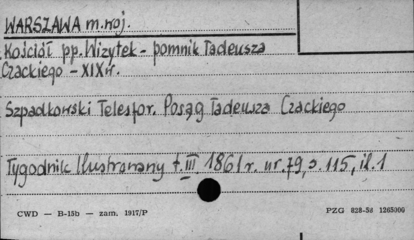 WARSZAWA m.woj.
Kościół pp. Wizytek - pomnik Tadeusza
Czackiego - XIX w.
Szpadkowski Telesfor. Posąg Tadeusza Czackiego
Tygodnik Ilustrowany t. III 1861 r. nr. 79, s. 115, il. 1
CWD — B-15b — zam. 1917/P
PZG 828-5d 1265000